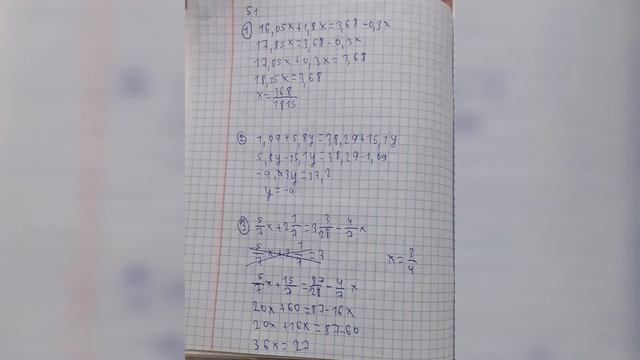 S1
① 16,05x+1,8x=3,68-0,3x
17,85x=3,68-0,3x
17,85x+0,3x=3,68
18,15x=3,68
x=368/1815
② 1,09+5,8y=38,29+15,1y
5,8y-15,1y=38,29-1,09
y=-4
③ 5/7x+2 1/7=3 3/28-4/7x
5/7x+2 1/7=3
x=3/4
5/7x+15/7=87/28-4/7x
20x+60=87-16x
20x+16x=87-60
36x=27